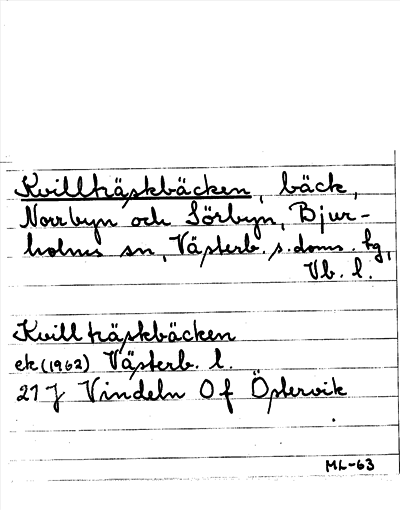 Kvillträskbäcken, bäck,
Norrbyn och Sörbyn, Bjur-
holms sn, Västerb. s. doms. hg,
Vb. l.
Kvillträskbäcken
ek (1962) Västerb. l.
21 J Vindeln 0 f Östervik
ML-63